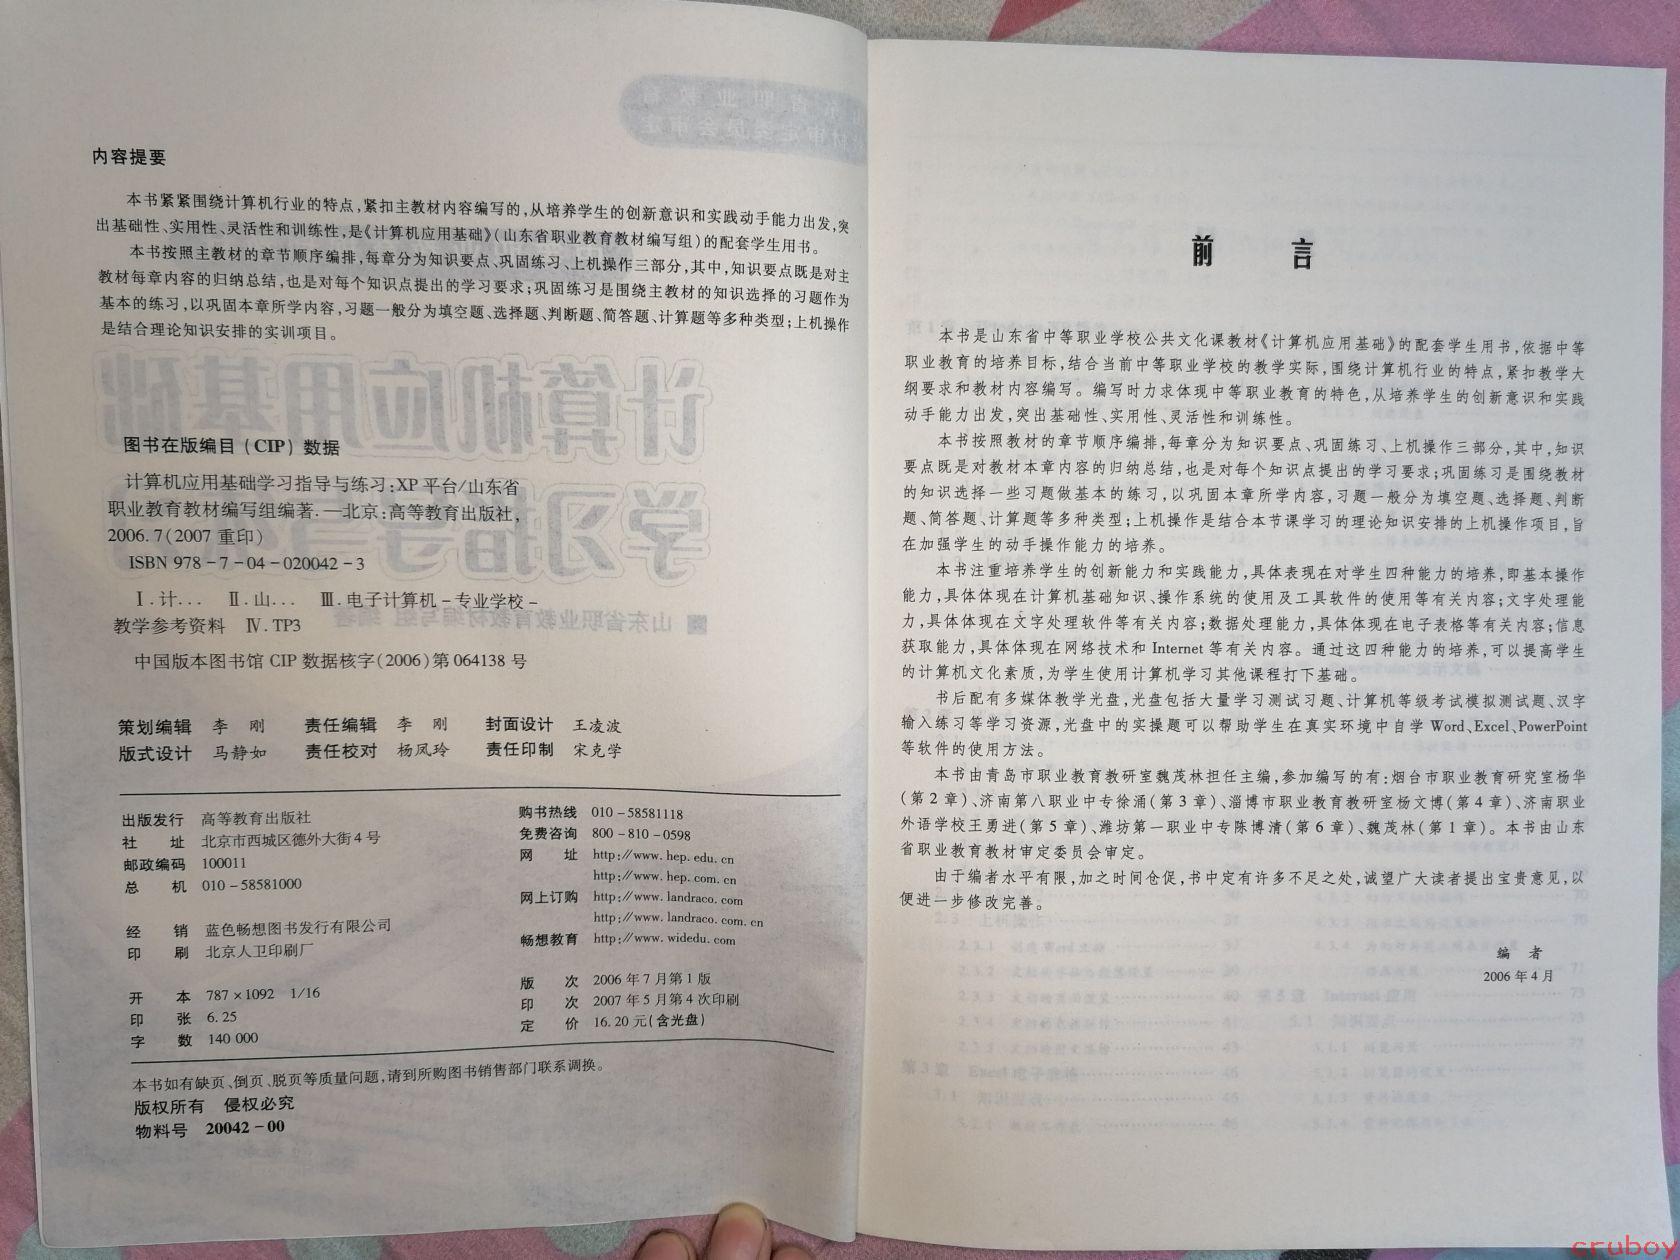 内容提要
本书紧紧围绕计算机行业的特点,紧扣主教材内容编写的,从培养学生的创新意识和实践动手能力出发,突
出基础性、实用性、灵活性和训练性,是《计算机应用基础》(山东省职业教育教材编写组)的配套学生用书。
本书按照主教材的章节顺序编排,每章分为知识要点、巩固练习、上机操作三部分,其中,知识要点既是对主
教材每章内容的归纳总结,也是对每个知识点提出的学习要求;巩固练习是围绕主教材的知识选择的习题作为
基本的练习,以巩固本章所学内容,习题一般分为填空题、选择题、判断题、简答题、计算题等多种类型;上机操作
是结合理论知识安排的实训项目。
图书在版编目(CIP)数据
计算机应用基础学习指导与练习:XP平台/山东省
职业教育教材编写组编著.—北京:高等教育出版社,
2006.7(2007重印)
ISBN 978-7-04-020042-3
Ⅰ.计... Ⅱ.山... Ⅲ.电子计算机-专业学校-
教学参考资料 Ⅳ.TP3
中国版本图书馆CIP数据核字(2006)第064138号
策划编辑 李 刚 责任编辑 李 刚 封面设计 王凌波
版式设计 马静如 责任校对 杨凤玲 责任印制 宋克学
出版发行 高等教育出版社
社 址 北京市西城区德外大街4号
邮政编码 100011
总 机 010-58581000
经 销 蓝色畅想图书发行有限公司
印 刷 北京人卫印刷厂
开 本 787×1092 1/16
印 张 6.25
字 数 140 000
购书热线 010-58581118
免费咨询 800-810-0598
网 址 http://www.hep.edu.cn
http://www.hep.com.cn
网上订购 http://www.landraco.com
http://www.landraco.com.cn
畅想教育 http://www.widedu.com
版 次 2006年7月第1版
印 次 2007年5月第4次印刷
定 价 16.20元(含光盘)
本书如有缺页、倒页、脱页等质量问题,请到所购图书销售部门联系调换。
版权所有 侵权必究
物料号 20042-00
前 言
本书是山东省中等职业学校公共文化课教材《计算机应用基础》的配套学生用书,依据中等
职业教育的培养目标,结合当前中等职业学校的教学实际,围绕计算机行业的特点,紧扣教学大
纲要求和教材内容编写。编写时力求体现中等职业教育的特色,从培养学生的创新意识和实践
动手能力出发,突出基础性、实用性、灵活性和训练性。
本书按照教材的章节顺序编排,每章分为知识要点、巩固练习、上机操作三部分,其中,知识
要点既是对教材本章内容的归纳总结,也是对每个知识点提出的学习要求;巩固练习是围绕教材
的知识选择一些习题做基本的练习,以巩固本章所学内容,习题一般分为填空题、选择题、判断
题、简答题、计算题等多种类型;上机操作是结合本节课学习的理论知识安排的上机操作项目,旨
在加强学生的动手操作能力的培养。
本书注重培养学生的创新能力和实践能力,具体表现在对学生四种能力的培养,即基本操作
能力,具体体现在计算机基础知识、操作系统的使用及工具软件的使用等有关内容;文字处理能
力,具体体现在文字处理软件等有关内容;数据处理能力,具体体现在电子表格等有关内容;信息
获取能力,具体体现在网络技术和Internet等有关内容。通过这四种能力的培养,可以提高学生
的计算机文化素质,为学生使用计算机学习其他课程打下基础。
书后配有多媒体教学光盘,光盘包括大量学习测试习题、计算机等级考试模拟测试题、汉字
输入练习等学习资源,光盘中的实操题可以帮助学生在真实环境中自学Word、Excel、PowerPoint
等软件的使用方法。
本书由青岛市职业教育教研室魏茂林担任主编,参加编写的有:烟台市职业教育研究室杨华
(第2章)、济南第八职业中专徐涌(第3章)、淄博市职业教育教研室杨文博(第4章)、济南职业
外语学校王勇进(第5章)、潍坊第一职业中专陈博清(第6章)、魏茂林(第1章)。本书由山东
省职业教育教材审定委员会审定。
由于编者水平有限,加之时间仓促,书中定有许多不足之处,诚望广大读者提出宝贵意见,以
便进一步修改完善。
编 者
2006年4月
cruboy